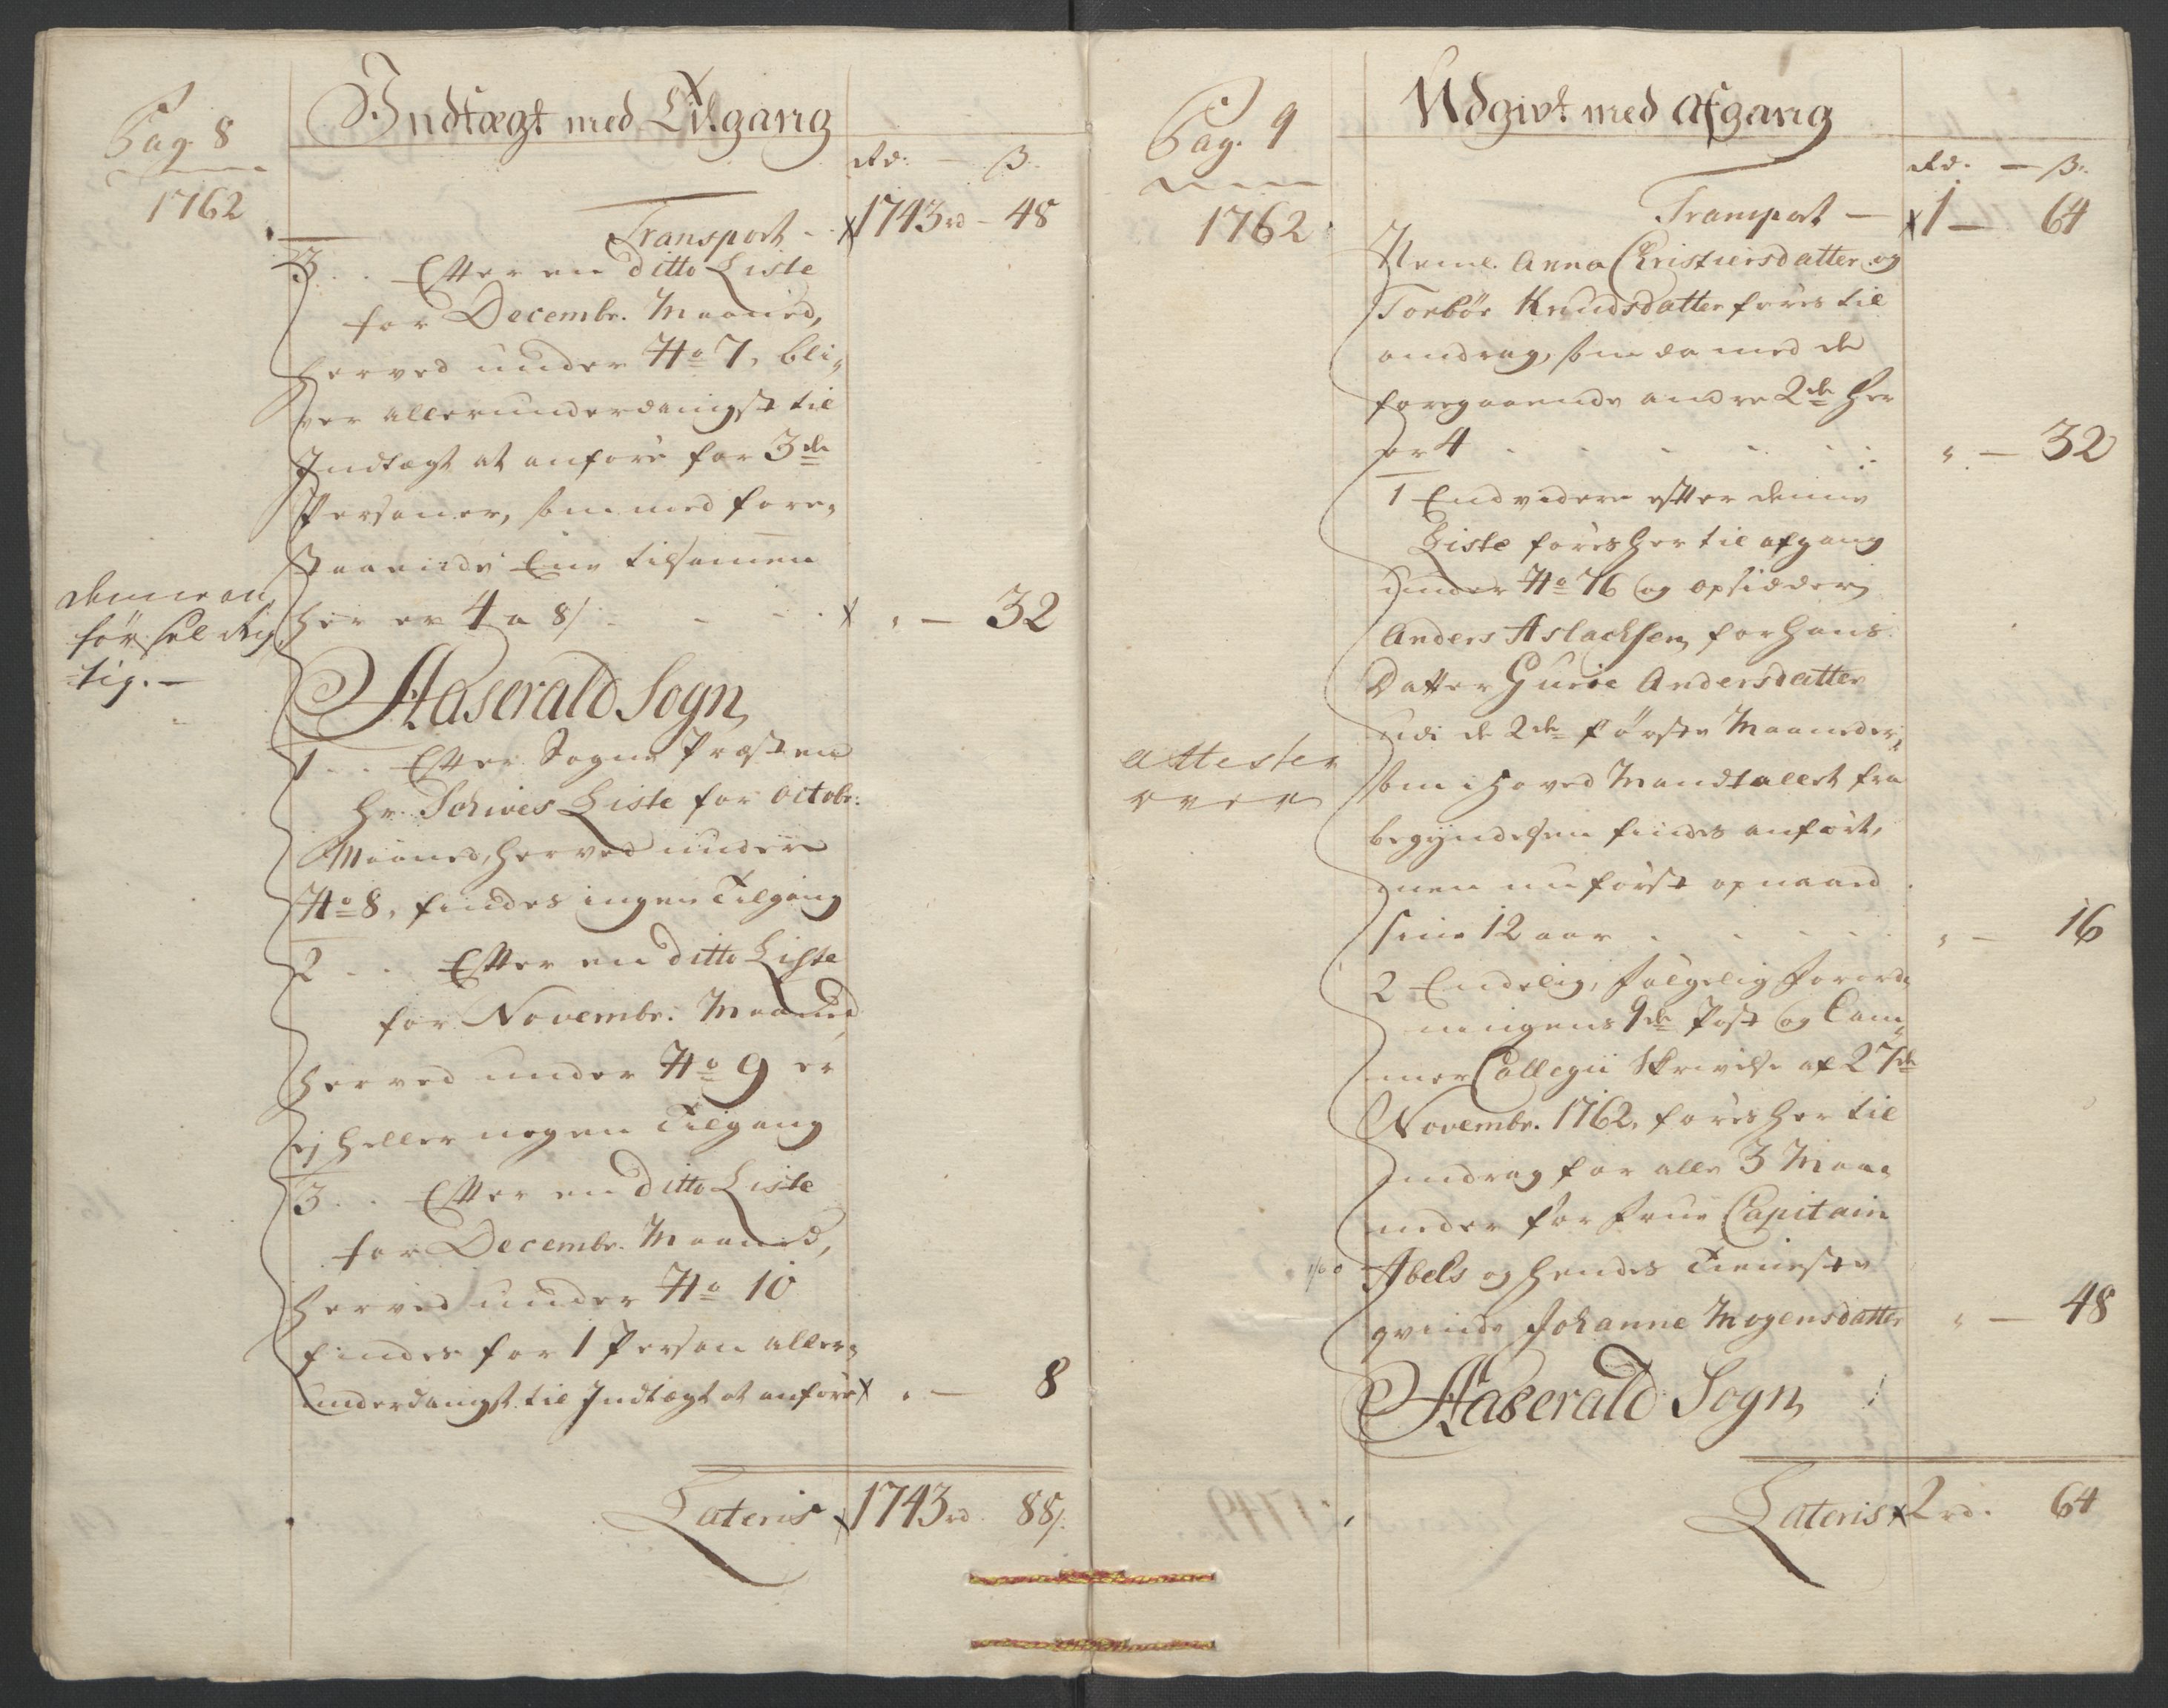 Pag 8
1762
Indtægt med Tilgang
Rd. — ß.
Transport - x 1743 rd - 48
3 . . Efter en ditto Liste
for Decembr. Maaned,
herved under No 7, bli-
ver allerunderdanigst til
Indtægt at anføre for 3de
Personer, som med fore-
staaende Ene tilsamen
her er 4 a 8/ - - - x " — 32
denne an
førsel Rig
tig. —
Haserald Sogn
1 . . Efter Sogne Præsten
Hr. Schives Liste for Octobr.
Maaned, herved under
No 8, findes ingen Tilgang
2 . . Efter en ditto Liste
for Novembr. Maaned
herved under No 9 er
ej heller nogen Tilgang
3 . . Efter en ditto Liste
for Decembr. Maaned,
herved under No 10
findes for 1 Person aller-
underdanigst til Indtægt at anføre x " — 8
Lateris x 1743 rd. 88/.
Pag. 9
1762
Udgivt med Afgang
Rd. — ß.
Transport — x 1 — 64
Neml. Anna Christiersdatter og
Torbør Knudsdatter føres til
andrag, som da med de
foregaaende andre 2de her
er 4 . . . . . " — 32
1 Endvidere efter denne
Liste føres her til afgang
under No 76 og opsidder
Anders Aslachsen for hans
Datter Gurie Andersdatter
udi de 2de første Maaneder,
som i Hoved Mandtallet fra
begyndelsen findes anført,
men nu først opnaaed
sine 12 aar . . . . . " — 16
attester
2 Endelig, følgelig Forord-
ningens 9de Post og Cam-
mer Collegii Skrivelse af 27de
Novembr. 1762, føres her til
andrag for alle 3 Maa-
neder for Frue Capitain
Abels og hendes Tieneste
qvinde Johanne Mogensdatter " — 48
Haserald Sogn
Lateris x 2 rd. 64